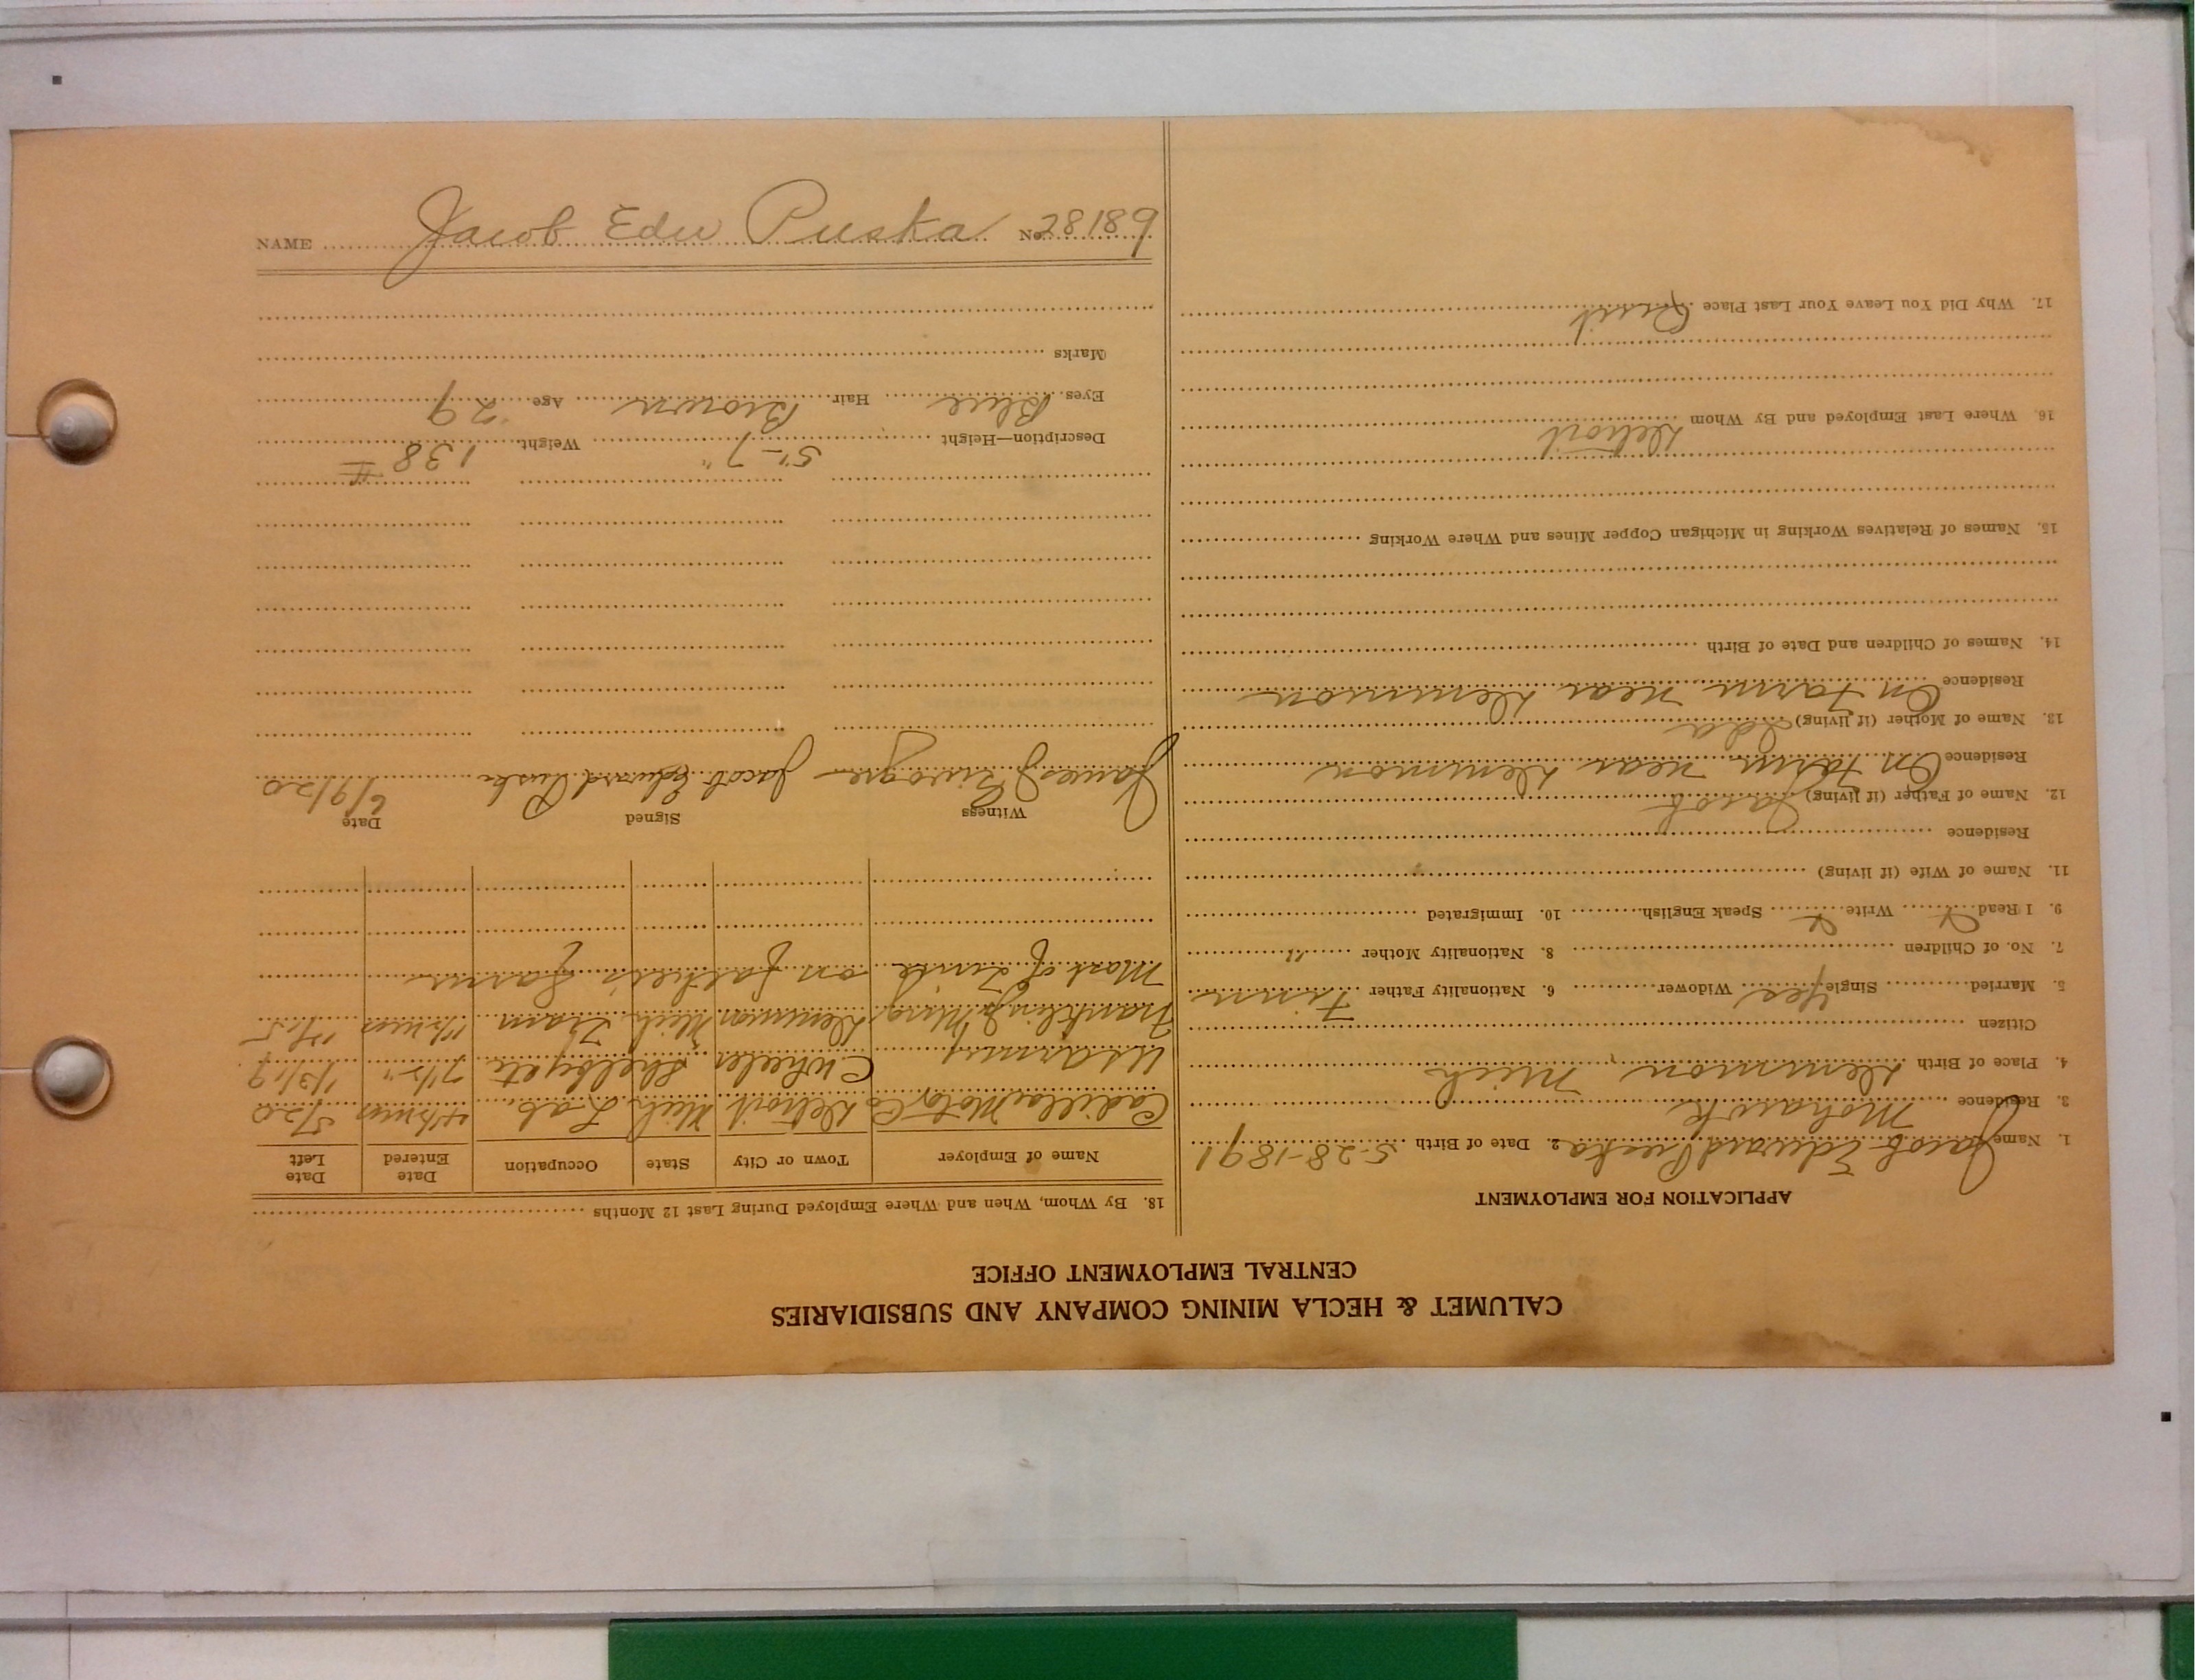 CALUMET & HECLA MINING COMPANY AND SUBSIDIARIES
CENTRAL EMPLOYMENT OFFICE
APPLICATION FOR EMPLOYMENT
1. Name Jacob Edward Puska 2. Date of Birth 5-28-1891
3. Residence Mohawk
4. Place of Birth Demmon, Mich
Citizen
5. Married Single Yes Widower 6. Nationality Father Finn
7. No. of Children 8. Nationality Mother "
9. I Read Write Speak English 10. Immigrated
11. Name of Wife (if living)
Residence
12. Name of Father (if living) Jacob
Residence On Farm near Demmon
13. Name of Mother (if living) Ida
Residence On Farm near Demmon
14. Names of Children and Date of Birth
15. Names of Relatives Working in Michigan Copper Mines and Where Working
16. Where Last Employed and By Whom
Detroit
17. Why Did You Leave Your Last Place Quit
18. By Whom, When and Where Employed During Last 12 Months
Name of Employer Town or City State Occupation Date Entered Date Left
Cadilla Motor Co Detroit Mich Lab. 4½ mos 5/20
US Army C Wheeler Shelby etc 7½ " 1/3/19
Franklin Jr Ming Demmon Mich Tram
Most of Time on father's farm
Witness Signed Date
James Jacob Edward Puska 6/9/20
Description—Height 5'-7" Weight 138 #
Eyes Blue Hair Brown Age 29
Marks
NAME Jacob Edw Puska No. 28189